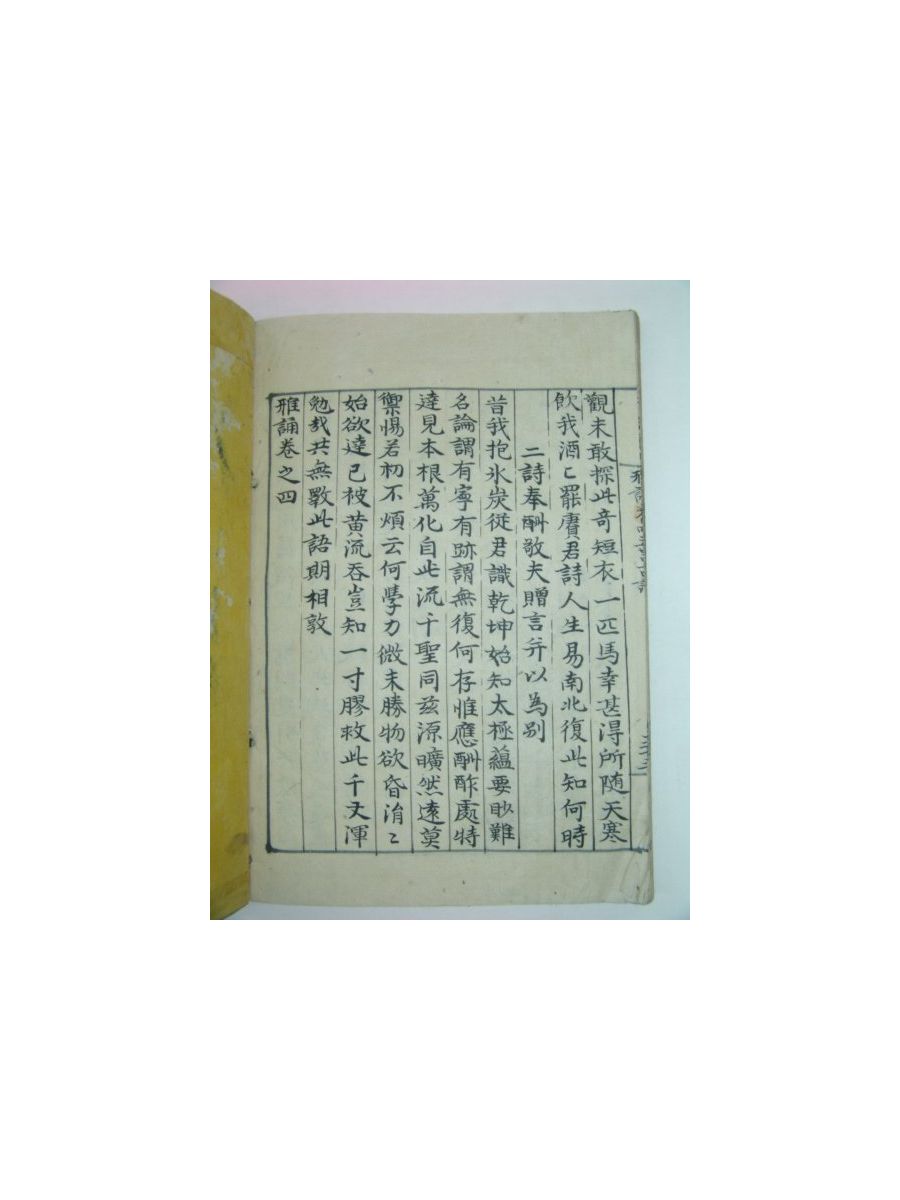 觀未敢探此奇短衣一匹馬幸甚得所随天寒
飮我酒〻罷賡君詩人生易南北復此知何時
二詩奉酬敬夫贈言幷以為別
昔我抱氷炭從君識乾坤始知太極蘊要眇難
名論謂有寧有跡謂無復何存惟應酬酢處特
達見本根萬化自此流千聖同玆源曠然遠莫
禦惕若初不煩云何學力微未勝物欲昏涓〻
始欲達已被黄流呑豈知一寸膠救此千丈渾
勉哉共無斁此語期相敦
雅誦卷之四